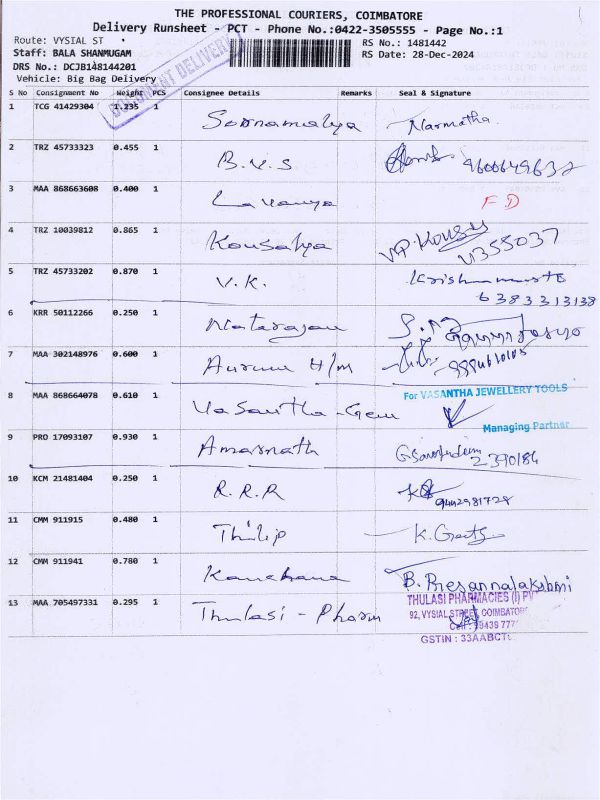 THE PROFESSIONAL COURIERS, COIMBATORE
Delivery Runsheet - PCT - Phone No.:0422-3505555 - Page No.:1
Route: VYSIAL ST
RS No.: 1481442
Staff: BALA SHANMUGAM
RS Date: 28-Dec-2024
DRS No.: DCJB148144201
Vehicle: Big Bag Delivery
DOCUMENT DELIVERY
S No Consignment No Weight PCS Consignee Details Remarks Seal & Signature
1 TCG 41429304 1.235 1 Narmatha
2 TRZ 45733323 0.455 1 B.V.S 9600649632
3 MAA 868663608 0.400 1 Lavanya FD
4 TRZ 10039812 0.865 1 Kousalya VP. Kousy
5 TRZ 45733202 0.870 1 V.K.
6383313138
6 KRR 50112266 0.250 1 Natarajan
7 MAA 302148976 0.600 1 H/m
8 MAA 868664078 0.610 1 Vasantha-Gem For VASANTHA JEWELLERY TOOLS
Managing Partner
9 PRO 17093107 0.930 1 Amarnath 2390184
10 KCM 21481404 0.250 1 R.R.R 9442981728
11 CMM 911915 0.480 1 Thilip K.
12 CMM 911941 0.780 1 Kanchana B. Presannalakshmi
13 MAA 705497331 0.295 1 Thulasi - Pharm THULASI PHARMACIES (I) PV
92, VYSIAL STREET, COIMBATORE
GSTIN : 33AABCT